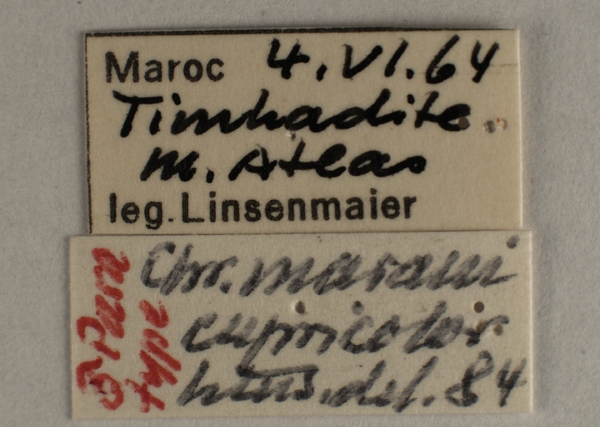 Maroc 4.VI.64
Timhadite
m. Atlas
leg. Linsenmaier
Chr. marani
cupricolor
Lins. det. 84
♂ Para
type